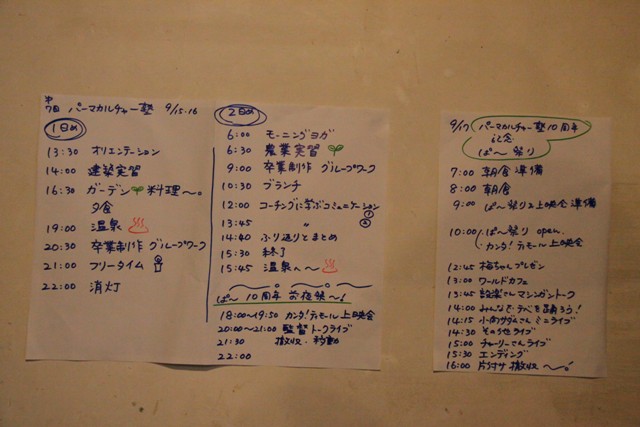 第7回 パーマカルチャー塾 9/15.16
1日め
13:30 オリエンテーション
14:00 建築実習
16:30 ガーデン料理〜。
夕食
19:00 温泉
20:30 卒業制作 グループワーク
21:00 フリータイム
22:00 消灯
2日め
6:00 モーニングヨガ
6:30 農業実習
9:00 卒業制作 グループワーク
10:30 ブランチ
12:00 コーチングに学ぶコミュニケーション①
13:45 〃 ②
14:40 ふり返りとまとめ
15:30 終了
15:45 温泉へ〜
ぱ〜 10周年 前夜祭〜!
18:00〜19:50 カンタ!ティモール上映会
20:00〜21:00 監督トークライブ
21:30 撤収・移動
22:00
9/17 パーマカルチャー塾10周年
記念
ぱ〜祭り
7:00 朝食準備
8:00 朝食
9:00 ぱ〜祭り&上映会準備
10:00 ぱ〜祭り open.
カンタ!ティモール上映会
12:45 梅ちゃんプレゼン
13:00 ワールドカフェ
13:45 設楽さんマシンガントーク
14:00 みんなでテベを踊ろう!
14:15 小向サダムさんミニライブ
14:30 その他ライブ
15:00 チャーリーさんライブ
15:30 エンディング
16:00 片付け 撤収〜!